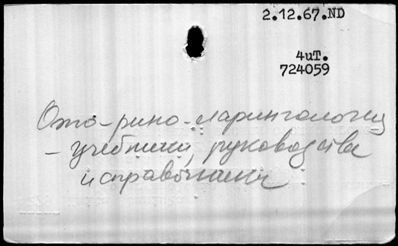 2.12.67.ND
4иТ.
724059
Ото-рино-ларингология
- учебники, руководства
и справочники